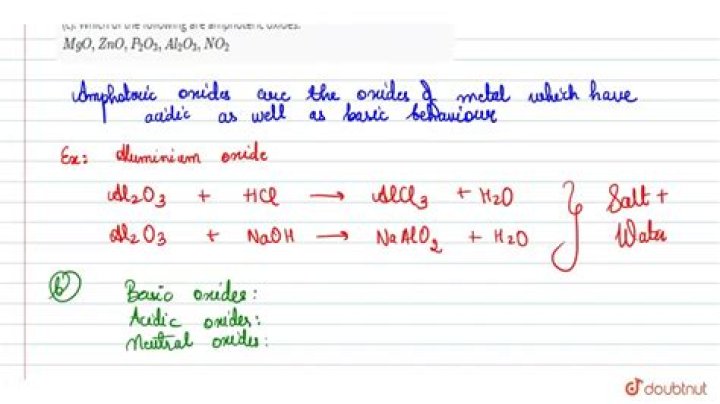 (c). Which of the following are amphoteric oxides:
MgO, ZnO, P₂O₃, Al₂O₃, NO₂
Amphoteric oxides are the oxides of metal which have
acidic as well as basic behaviour
Ex: Aluminium oxide
Al₂O₃ + HCl → AlCl₃ + H₂O } Salt +
Al₂O₃ + NaOH → NaAlO₂ + H₂O Water
(b) Basic oxides:
Acidic oxides:
Neutral oxides:
doubtnut